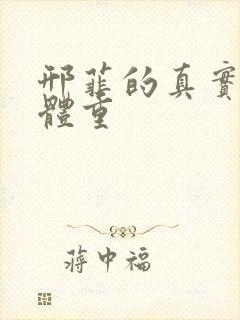 邢菲的真實
體重
蔣中福